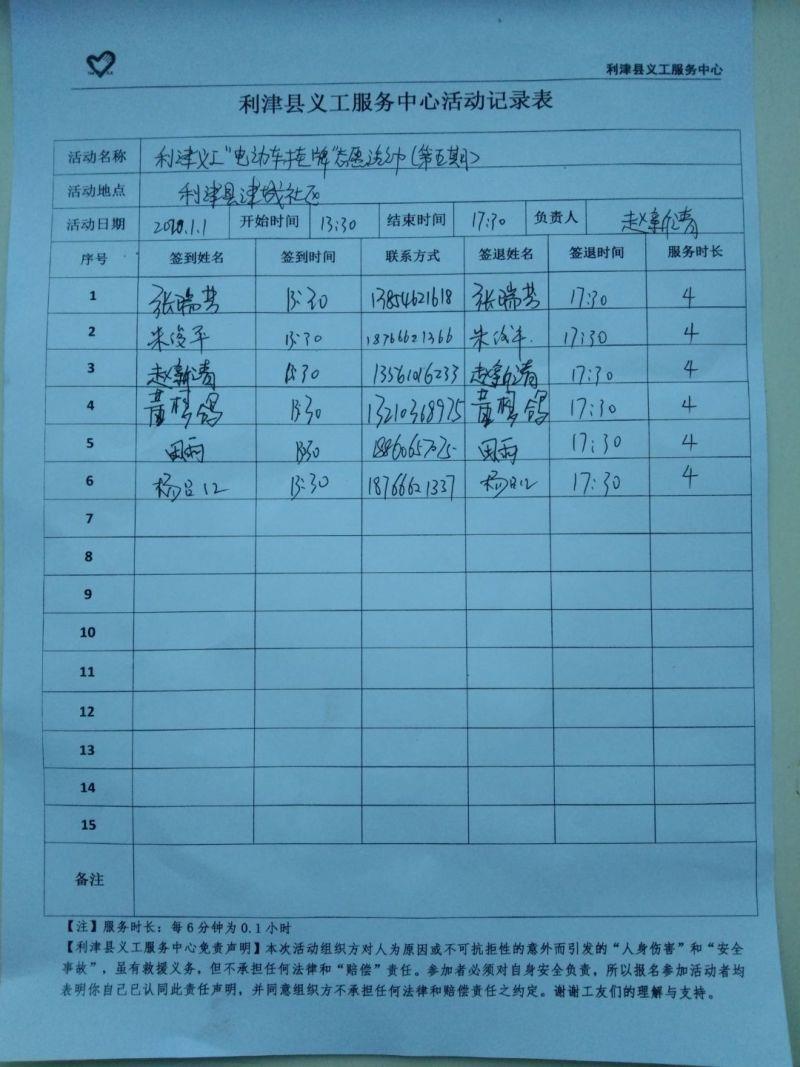 利津县义工服务中心
利津县义工服务中心活动记录表
活动名称 利津义工"电动车挂牌"志愿活动(第五期)
活动地点 利津县津城社区
活动日期 2020.1.1 开始时间 13:30 结束时间 17:30 负责人 赵新清
序号 签到姓名 签到时间 联系方式 签退姓名 签退时间 服务时长
1 张瑞芸 13:30 13854621618 张瑞芸 17:30 4
2 朱俊平 13:30 18766621366 朱俊平 17:30 4
3 赵新清 13:30 13561016233 赵新清 17:30 4
4 13:30 13210368975 17:30 4
5 田雨 13:30 田雨 17:30 4
6 13:30 18766621337 17:30 4
7
8
9
10
11
12
13
14
15
备注
【注】服务时长：每6分钟为0.1小时
【利津县义工服务中心免责声明】本次活动组织方对人为原因或不可抗拒性的意外而引发的“人身伤害”和“安全
事故”，虽有救援义务，但不承担任何法律和“赔偿”责任。参加者必须对自身安全负责，所以报名参加活动者均
表明你自己已认同此责任声明，并同意组织方不承担任何法律和赔偿责任之约定。谢谢工友们的理解与支持。